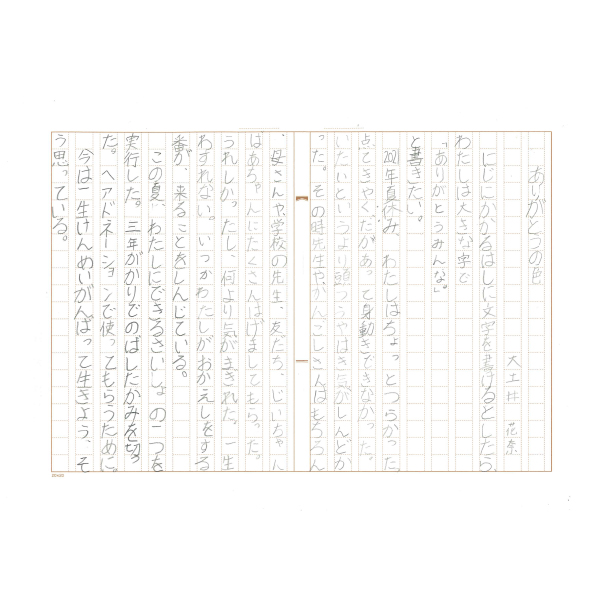 ありがとうの色
大土井 花奈
にじにかかるはしに文字を書けるとしたら、
わたしは大きな字で
「ありがとうみんな。」
と書きたい。
2021年夏休み、わたしはちょっとつらかった。
点てきやくだがあって身動きできなかった。
いたいというより頭つうやはき気がしんどか
った。その時先生や、かんごしさんはもちろん
、母さんや、学校の先生、友だち、じいちゃん
ばあちゃんにたくさんはげましてもらった。
うれしかったし、何より気がまぎれた。一生
わすれない。いつかわたしがおかえしをする
番が、来ることをしんじている。
この夏、わたしにできるさいしょの一つを
実行した。三年がかりでのばしたかみを切っ
た。ヘアドネーションで使ってもらうために。
今は一生けんめいがんばって生きよう、そ
う思っている。